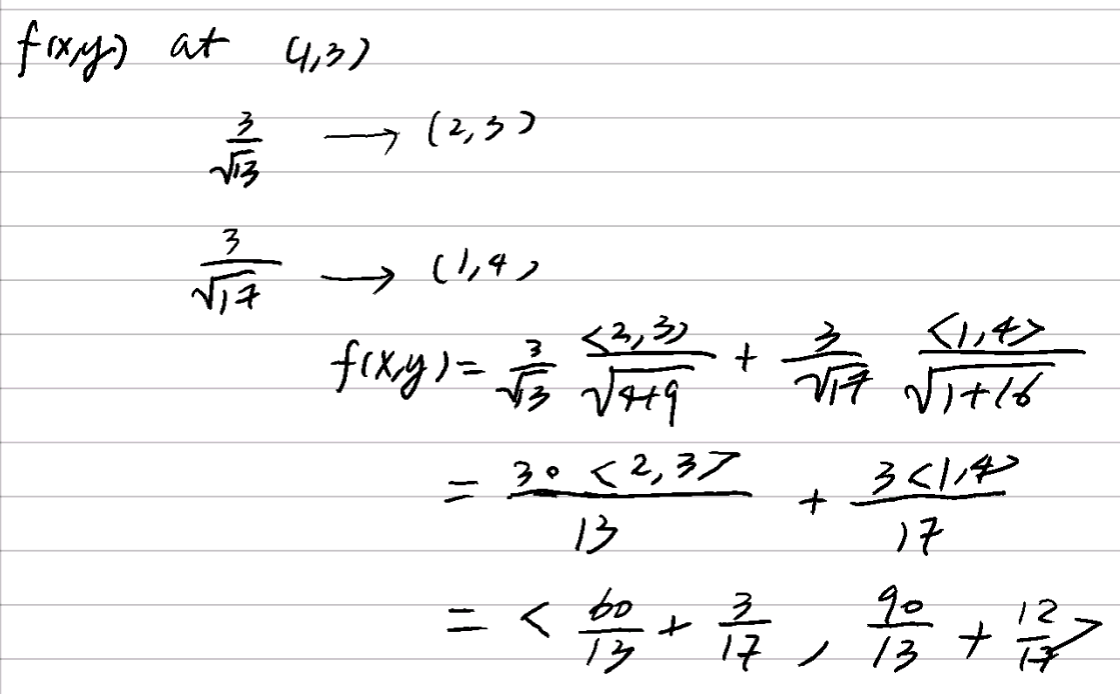 f(x,y) at (1,3)
3/√13 → (2,3)
3/√17 → (1,4)
f(x,y) = 3/√13 <2,3>/√4+9 + 3/√17 <1,4>/√1+16
= 30 <2,3>/13 + 3<1,4>/17
= < 60/13 + 3/17 , 90/13 + 12/17 >